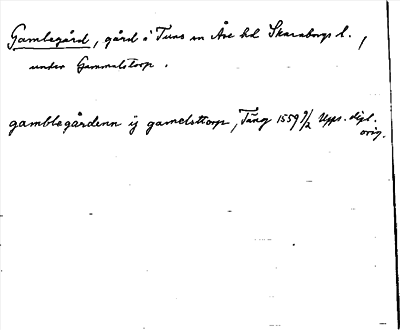 Gamlegård, gård i Tuns sn Åse hd Skaraborgs l.,
under Gammelstorp.
gamblegårdenn ij gamelsttorp, Täng 1559 9/2 Upps. dipl.
orig.